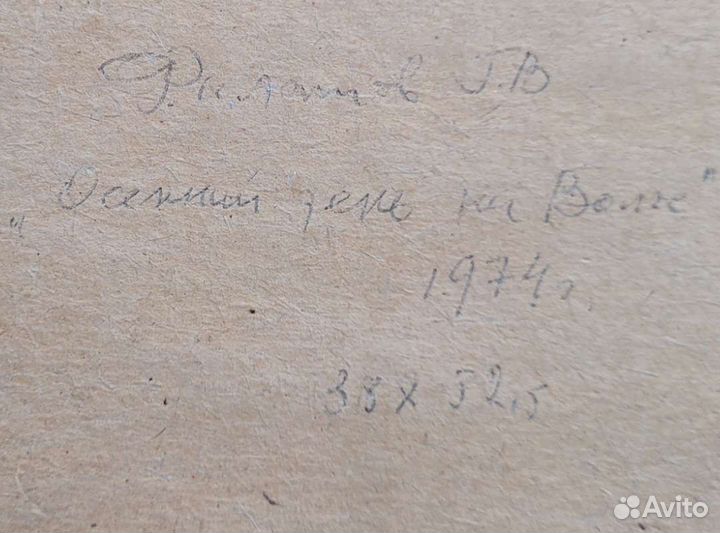 Филатов Г.В
„Осенний день на Волге"
1974г.
38х52,5
Avito